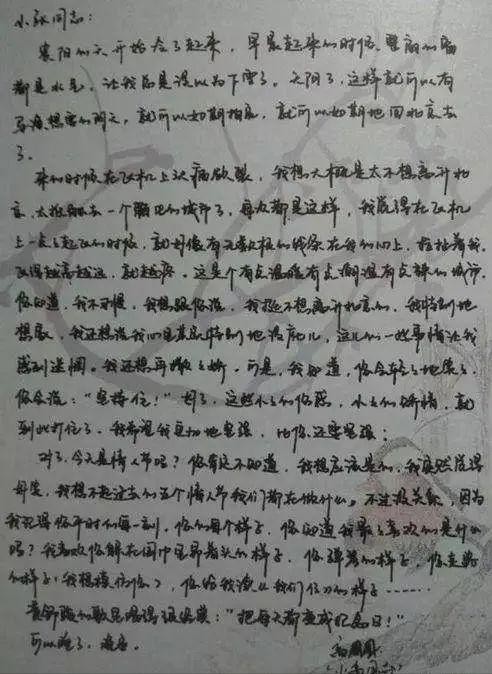 小永同志:
襄阳的天开始冷了起来,早晨起来的时候,里面的窗
都是水呢,让我总是误以为下雪了。天阴了,这样就可以有
想象的阴天,就可以如期拍完,就可以如期地回北京去
了。
来的时候在飞机上头痛欲裂,我想大概是太不想离开北
京,太抵触去一个陌生的城市了,每次都是这样,我总得在飞机
上一点点起飞的时候,就好像有无数根的线系在我的心上,拉扯着我,
飞得越高越远,就越疼。这是个有点温暖有点潮湿有点辣的城市。
你知道,我不习惯,我想跟你说,我挺不想离开北京的,我特别地
想家,我还想说我心里其实特别地没底儿,这儿的一些事情让我
感到迷惘。我还想再撒撒娇。可是,我知道,你会轻轻地笑笑,
你会说:“坚持住!”对了,这些小小的伤感,小小的矫情,就
到此打住了。我希望我真切地坚强,比你还要坚强;
对了,今天是情人节吗?你有没有知道,我想应该是的,我突然觉得
好笑,我想不起过去的五个情人节我们都在做什么。不过没关系,因为
我记得你平时的每一刻,你的每个样子,你知道我最喜欢的是什么
吗?我喜欢你躲在围巾里只露着头的样子,你弹琴的样子,你走路
的样子(我想模仿你),你给我读《我们仨》的样子……
黄舒骏的歌里唱得很经典:“把每天都变成纪念日!”
可以睡了,晚安。
周周
(小周同志)